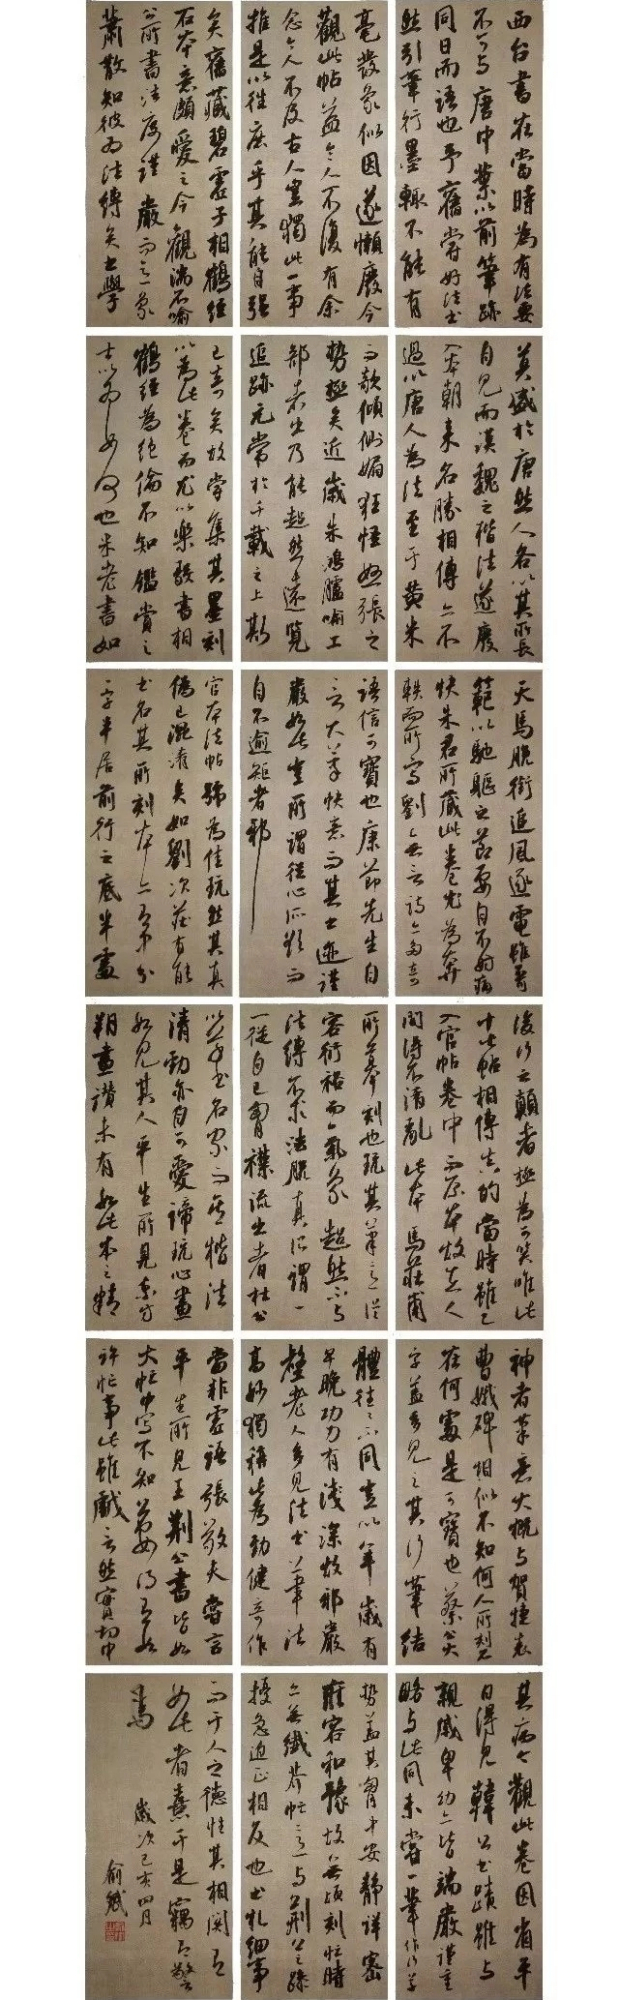 西台書在當時為有法要
不可与唐中葉以前筆跡
同日而語也予舊嘗好法書
然引筆行墨輒不能有
毫發象似因遂懶廢今
觀此帖益令人不復有余
念今人不及古人豈獨此一事
推是以往庶乎其能自强
矣舊藏碧虛子相鶴經
石本意頗愛之今觀湍石喻
公所書法度謹嚴而意象
蕭散知彼為法縛矣書學
莫盛於唐然人各以其所長
自見而漢魏之楷法遂廢
入本朝來名勝相傳亦不
過以唐人為法至于黃米
而欹傾側媚狂怪怒張之
勢極矣近歲朱鴻臚喻工
部者出乃能超然遠覽
追跡元常於千載之上斯
已奇矣故嘗集其墨刻
以為此卷而尤以樂毅書相
鶴經為絕倫不知鑑賞之
士以為如何也米老書如
天馬脫銜追風逐電雖不可
範以馳驅之節要自不妨痛
快朱君所藏此卷尤為奔
軼而所寫劉無言詩亦多奇
語信可寶也康節先生自
言大筆快意而其書迹謹
嚴如此豈所謂從心所欲而
自不逾矩者邪
官本法帖號為佳玩然其真
偽已混淆矣如劉次莊有能
書名其所刻本亦有中分
一字半居前行之底半處
後行之顛者極為可笑唯此
十七帖相傳真的當時雖已
入官帖卷中而原本故在人
間得不淆亂此本馬莊甫
所摹刻也玩其筆意從
容衍裕而氣象超然不与
法縛不求法脫真所謂一
一從自己胸襟流出者杜公
以草書名家而其楷法
清勁亦自可愛諦玩心畫
如見其人平生所見東方
朔畫讚未有如此本之精
神者筆意大概与賀捷表
曹娥碑相似不知何人所刻石
在何處是可寶也蔡公大
字蓋多見之其行筆結
體往往不同豈以年歲有
早晚功力有淺深故邪巖
壑老人多見法書筆法
高妙獨稱此為勁健奇作
當非虛語張敬夫嘗言
平生所見王荊公書皆如
大忙中寫不知公安得有如
許忙事此雖戲言然實切中
其病今觀此卷因省平
日得見韓公書蹟雖与
親戚卑幼亦皆端嚴謹重
略与此同未嘗一筆作行草
勢蓋其胸中安靜詳密
雍容和豫故無頃刻忙時
亦無纖芥忙意与荊公之躁
擾急迫正相反也書札細事
而于人之德性其相関有
如此者熹于是竊有警
焉
歲次己亥四月
俞斌